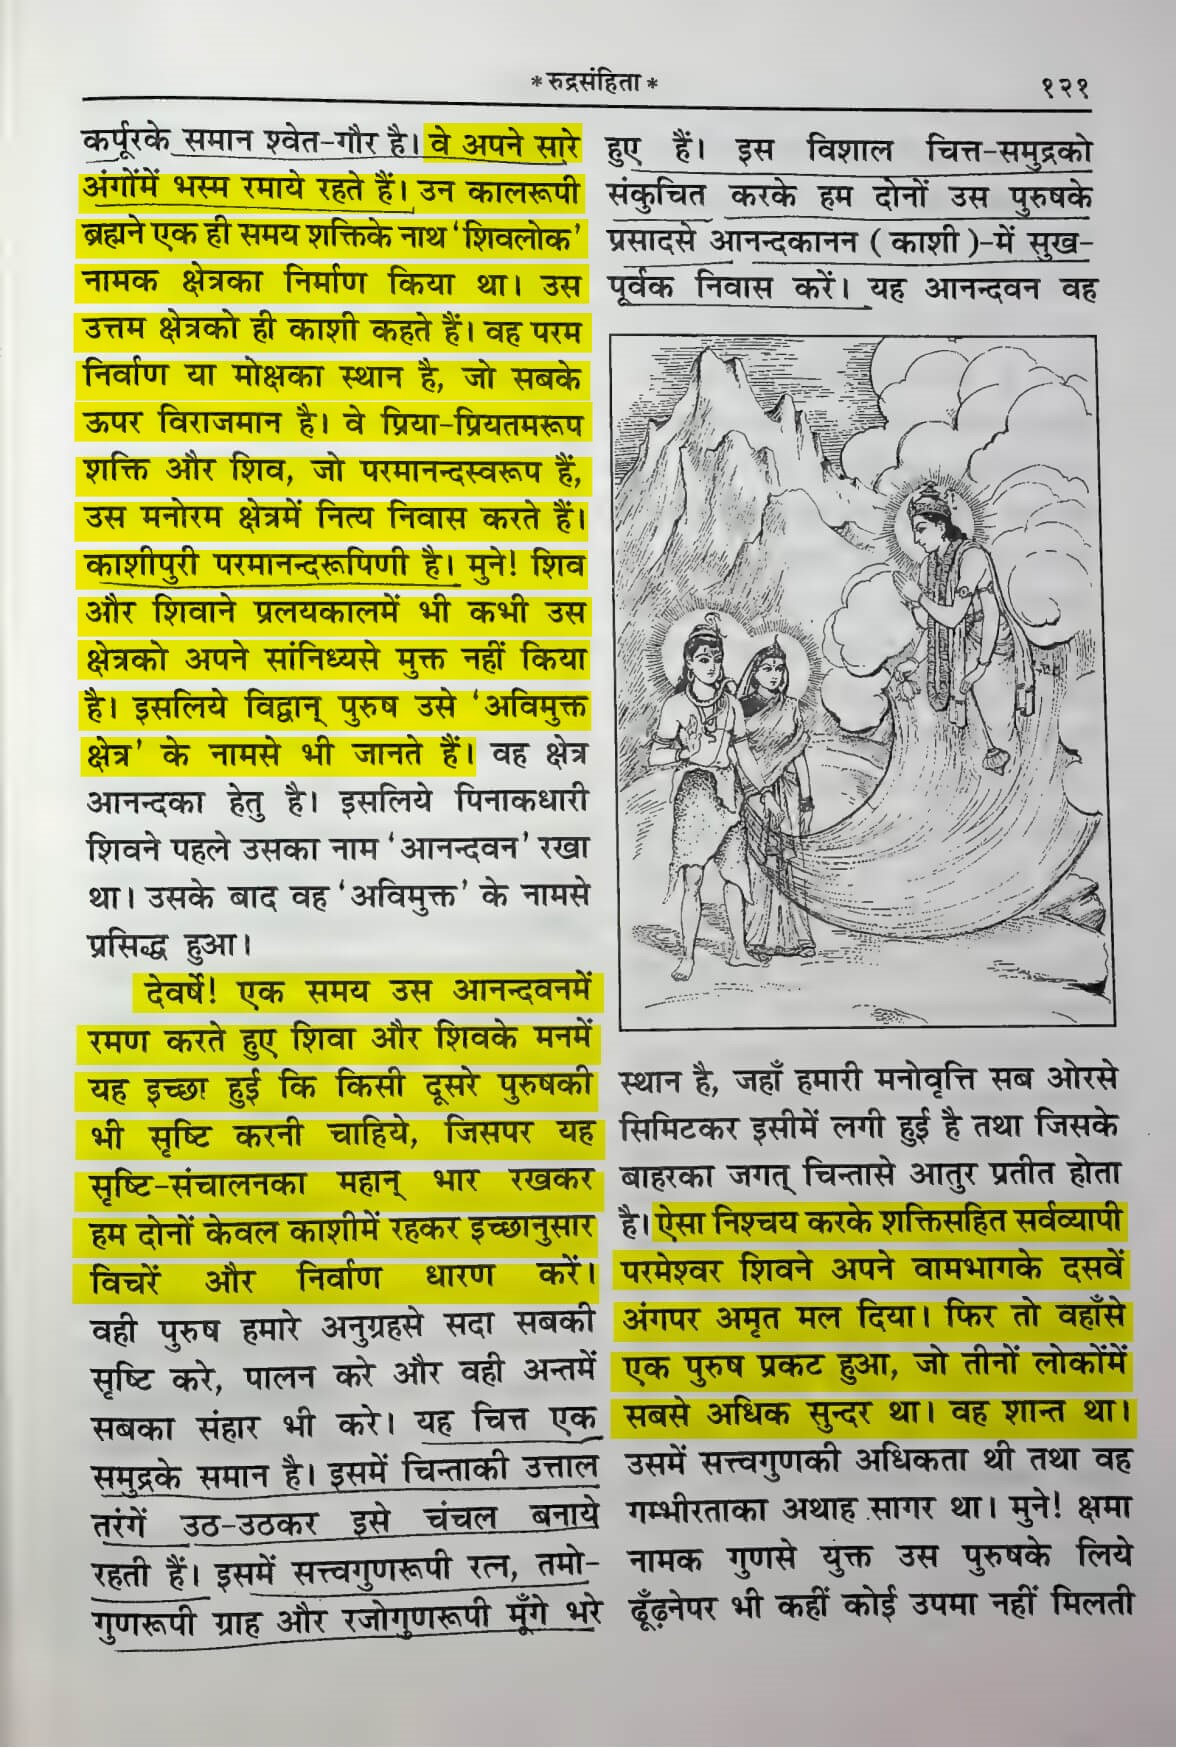 * रुद्रसंहिता *
१२१
कर्पूरके समान श्वेत-गौर है। वे अपने सारे
अंगोंमें भस्म रमाये रहते हैं। उन कालरूपी
ब्रह्मने एक ही समय शक्तिके नाथ ‘शिवलोक’
नामक क्षेत्रका निर्माण किया था। उस
उत्तम क्षेत्रको ही काशी कहते हैं। वह परम
निर्वाण या मोक्षका स्थान है, जो सबके
ऊपर विराजमान है। वे प्रिया-प्रियतमरूप
शक्ति और शिव, जो परमानन्दस्वरूप हैं,
उस मनोरम क्षेत्रमें नित्य निवास करते हैं।
काशीपुरी परमानन्दरूपिणी है। मुने! शिव
और शिवाने प्रलयकालमें भी कभी उस
क्षेत्रको अपने सांनिध्यसे मुक्त नहीं किया
है। इसलिये विद्वान् पुरुष उसे ‘अविमुक्त
क्षेत्र’ के नामसे भी जानते हैं। वह क्षेत्र
आनन्दका हेतु है। इसलिये पिनाकधारी
शिवने पहले उसका नाम ‘आनन्दवन’ रखा
था। उसके बाद वह ‘अविमुक्त’ के नामसे
प्रसिद्ध हुआ।
देवर्षे! एक समय उस आनन्दवनमें
रमण करते हुए शिवा और शिवके मनमें
यह इच्छा हुई कि किसी दूसरे पुरुषकी
भी सृष्टि करनी चाहिये, जिसपर यह
सृष्टि-संचालनका महान् भार रखकर
हम दोनों केवल काशीमें रहकर इच्छानुसार
विचरें और निर्वाण धारण करें।
वही पुरुष हमारे अनुग्रहसे सदा सबकी
सृष्टि करे, पालन करे और वही अन्तमें
सबका संहार भी करे। यह चित्त एक
समुद्रके समान है। इसमें चिन्ताकी उत्ताल
तरंगें उठ-उठकर इसे चंचल बनाये
रहती हैं। इसमें सत्त्वगुणरूपी रत्न, तमो-
गुणरूपी ग्राह और रजोगुणरूपी मूँगे भरे
हुए हैं। इस विशाल चित्त-समुद्रको
संकुचित करके हम दोनों उस पुरुषके
प्रसादसे आनन्दकानन (काशी)-में सुख-
पूर्वक निवास करें। यह आनन्दवन वह
स्थान है, जहाँ हमारी मनोवृत्ति सब ओरसे
सिमिटकर इसीमें लगी हुई है तथा जिसके
बाहरका जगत् चिन्तासे आतुर प्रतीत होता
है। ऐसा निश्चय करके शक्तिसहित सर्वव्यापी
परमेश्वर शिवने अपने वामभागके दसवें
अंगपर अमृत मल दिया। फिर तो वहाँसे
एक पुरुष प्रकट हुआ, जो तीनों लोकोंमें
सबसे अधिक सुन्दर था। वह शान्त था।
उसमें सत्त्वगुणकी अधिकता थी तथा वह
गम्भीरताका अथाह सागर था। मुने! क्षमा
नामक गुणसे युक्त उस पुरुषके लिये
ढूँढ़नेपर भी कहीं कोई उपमा नहीं मिलती